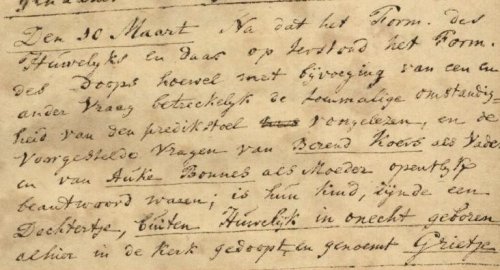 Den 10 Maart Na dat het Form. des
Huwelyks en daar op terstond het Form.
des Doops hoewel met bijvoeging van een en
ander Vraag betreckelyk de toumalige omstandig
heid van den predikstoel voorgelezen, en de
Voorgestelde Vragen van Berend Koers als Vader
en van Auke Bonnes als Moeder opentlyk
beantwoord waren; is hun kind, zijnde een
Dochtertje, buiten Huwelijk in onecht geboren
alhier in de Kerk gedoopt, en genoemt Grietje